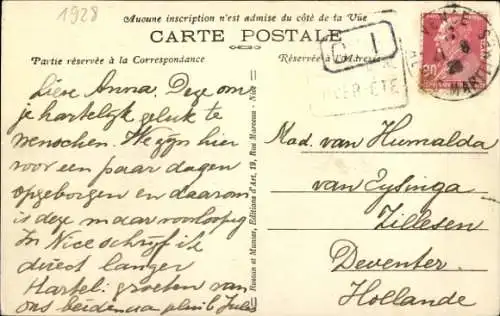 1928
Aucune inscription n'est admise du côté de la Vue
CARTE POSTALE
Partie réservée à la Correspondance
Réservée à l'Adresse
C I
HIVER-ÉTÉ
90
MARIT
Lieve Anna. Deze om
je hartelijk geluk te
wenschen. We zijn hier
voor een paar dagen
opgeborgen en daarom
is deze maar voorloopig
In Nice schrijf ik
direct langer
Hartel: groeten van
ons beiden Jules
Rostan et Munier, Editions d'Art, 19, Rue Marceau - Nice
Mad. van Humalda
van Eysinga
Zillesen
Deventer
Hollande